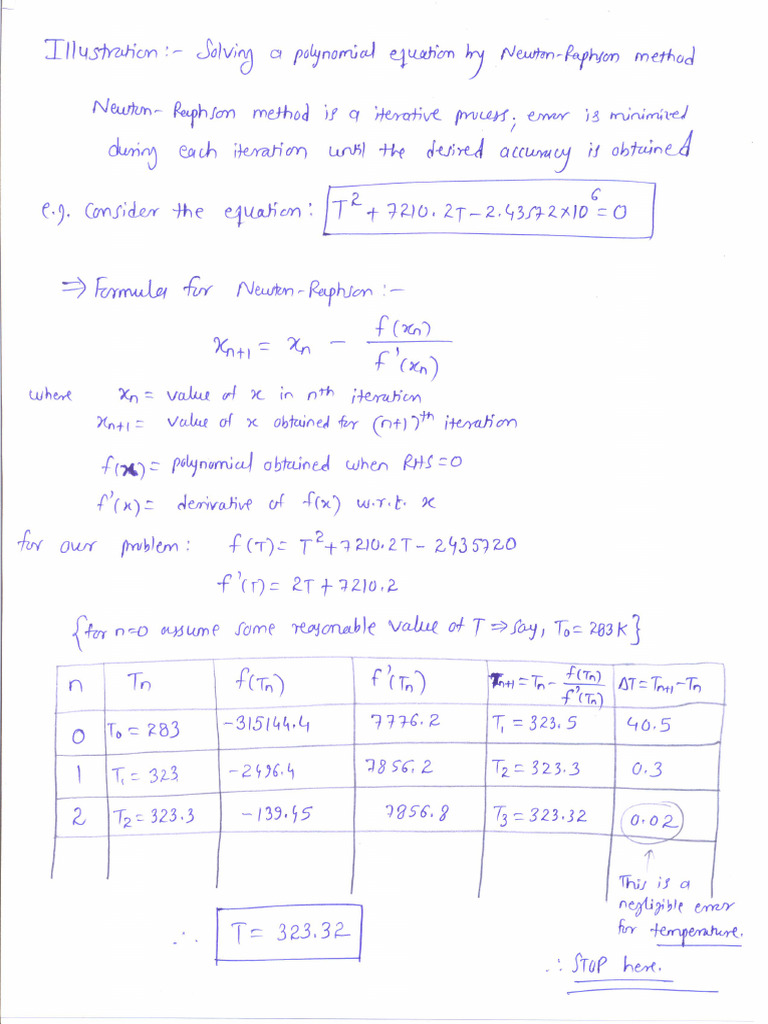 Illustration:- Solving a polynomial equation by Newton-Raphson method
Newton-Raphson method is a iterative process; error is minimized
during each iteration until the desired accuracy is obtained
e.g. Consider the equation: T² + 7210.2T - 2.43572×10⁶ = 0
⇒ Formula for Newton-Raphson:-
xₙ₊₁ = xₙ - f(xₙ)/f'(xₙ)
where xₙ = value of x in nᵗʰ iteration
xₙ₊₁ = value of x obtained for (n+1)ᵗʰ iteration
f(x) = polynomial obtained when RHS=0
f'(x) = derivative of f(x) w.r.t. x
for our problem: f(T) = T² + 7210.2T - 2435720
f'(T) = 2T + 7210.2
{for n=0 assume some reasonable value of T ⇒ say, T₀ = 283K}
n Tₙ f(Tₙ) f'(Tₙ) Tₙ₊₁ = Tₙ - f(Tₙ)/f'(Tₙ) ΔT = Tₙ₊₁ - Tₙ
0 T₀ = 283 -315144.4 7776.2 T₁ = 323.5 40.5
1 T₁ = 323 -2496.4 7856.2 T₂ = 323.3 0.3
2 T₂ = 323.3 -139.45 7856.8 T₃ = 323.32 0.02
This is a
negligible error
for temperature.
∴ T = 323.32
∴ STOP here.